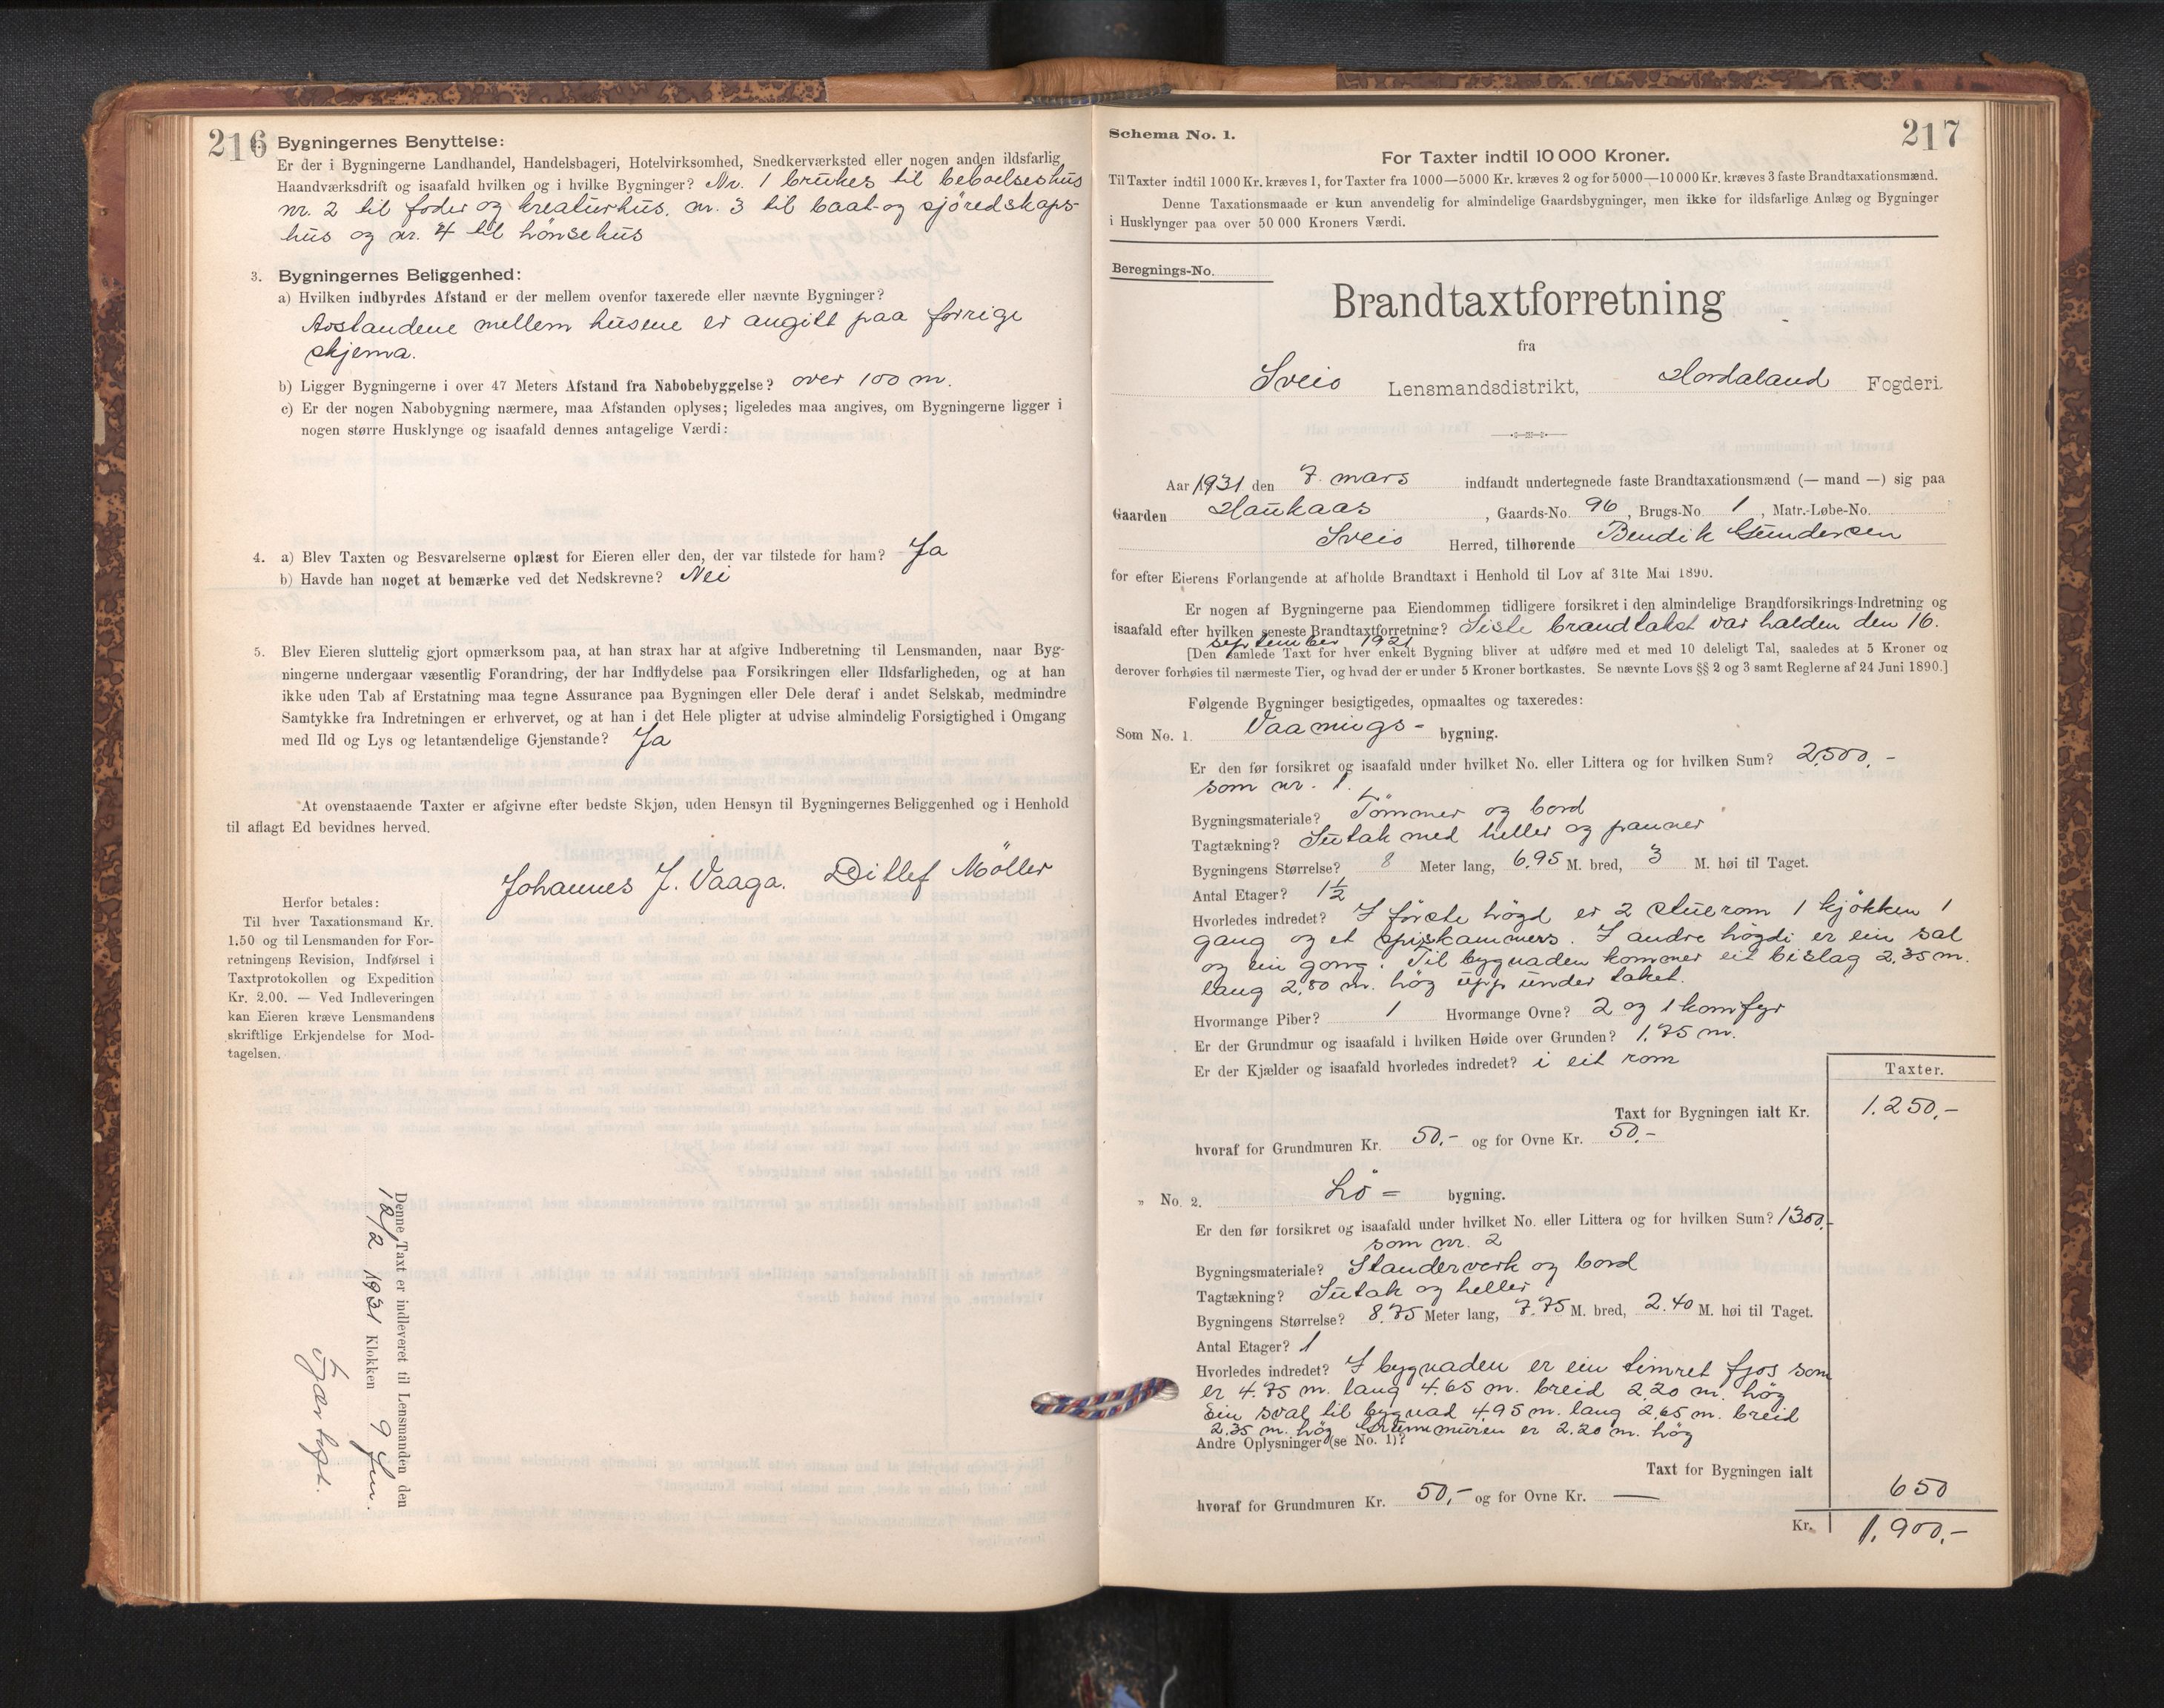 216
Bygningernes Benyttelse:
Er der i Bygningerne Landhandel, Handelsbageri, Hotelvirksomhed, Snedkerværksted eller nogen anden ildsfarlig
Haandværksdrift og isaafald hvilken og i hvilke Bygninger? Nr. 1 brukes til beboelseshus
nr. 2 til foder og kreaturhus. nr. 3 til baat- og sjöredskaps-
hus og nr. 4 til hönsehus
3. Bygningernes Beliggenhed:
a) Hvilken indbyrdes Afstand er der mellem ovenfor taxerede eller nævnte Bygninger?
Avstandene mellem husene er angitt paa forrige
skjema.
b) Ligger Bygningerne i over 47 Meters Afstand fra Nabobebyggelse? over 100 m.
c) Er der nogen Nabobygning nærmere, maa Afstanden oplyses; ligeledes maa angives, om Bygningerne ligger i
nogen større Husklynge og isaafald dennes antagelige Værdi:
4. a) Blev Taxten og Besvarelserne oplæst for Eieren eller den, der var tilstede for ham? Ja
b) Havde han noget at bemærke ved det Nedskrevne? Nei
5. Blev Eieren sluttelig gjort opmærksom paa, at han strax har at afgive Indberetning til Lensmanden, naar Byg-
ningerne undergaar væsentlig Forandring, der har Indflydelse paa Forsikringen eller Ildsfarligheden, og at han
ikke uden Tab af Erstatning maa tegne Assurance paa Bygningen eller Dele deraf i andet Selskab, medmindre
Samtykke fra Indretningen er erhvervet, og at han i det Hele pligter at udvise almindelig Forsigtighed i Omgang
med Ild og Lys og letantændelige Gjenstande? Ja
At ovenstaaende Taxter er afgivne efter bedste Skjøn, uden Hensyn til Bygningernes Beliggenhed og i Henhold
til aflagt Ed bevidnes herved.
Johannes J. Vaaga. Ditlef Möller
Herfor betales:
Til hver Taxationsmand Kr.
1.50 og til Lensmanden for For-
retningens Revision, Indførsel i
Taxtprotokollen og Expedition
Kr. 2.00. — Ved Indleveringen
kan Eieren kræve Lensmandens
skriftlige Erkjendelse for Mod-
tagelsen.
Denne Taxt er indleveret til Lensmanden den
12/2 1931 Klokken 9 fm.
217
Schema No. 1.
For Taxter indtil 10 000 Kroner.
Til Taxter indtil 1000 Kr. kræves 1, for Taxter fra 1000—5000 Kr. kræves 2 og for 5000—10 000 Kr. kræves 3 faste Brandtaxationsmænd.
Denne Taxationsmaade er kun anvendelig for almindelige Gaardsbygninger, men ikke for ildsfarlige Anlæg og Bygninger
i Husklynger paa over 50 000 Kroners Værdi.
Beregnings-No.
Brandtaxtforretning
fra
Sveio Lensmandsdistrikt, Hordaland Fogderi.
Aar 1931 den 7. mars indfandt undertegnede faste Brandtaxationsmænd (— mand —) sig paa
Gaarden Haukaas, Gaards-No. 96, Brugs-No. 1, Matr.-Løbe-No.
Sveio Herred, tilhørende Bendik Gundersen
for efter Eierens Forlangende at afholde Brandtaxt i Henhold til Lov af 31te Mai 1890.
Er nogen af Bygningerne paa Eiendommen tidligere forsikret i den almindelige Brandforsikrings-Indretning og
isaafald efter hvilken seneste Brandtaxtforretning? Siste brandtakst var halden den 16.
september 1921
[Den samlede Taxt for hver enkelt Bygning bliver at udføre med et med 10 deleligt Tal, saaledes at 5 Kroner og
derover forhøies til nærmeste Tier, og hvad der er under 5 Kroner bortkastes. Se nævnte Lovs §§ 2 og 3 samt Reglerne af 24 Juni 1890.]
Følgende Bygninger besigtigedes, opmaaltes og taxeredes:
Som No. 1. Vaanings- bygning.
Er den før forsikret og isaafald under hvilket No. eller Littera og for hvilken Sum? 2,500,-
som nr. 1.
Bygningsmateriale? Tömmer og bord
Tagtækning? Sutak med heller og panner
Bygningens Størrelse? 8 Meter lang, 6,95 M. bred, 3 M. høi til Taget.
Antal Etager? 1½
Hvorledes indredet? I förste högd er 2 stuerom 1 kjökken 1
gang og et spiskammers. I andre högdi er ein sal
og ein gong. Til bygnaden kommer eit bislag 2,35 m.
lang 2,80 m. hög upp under taket.
Hvormange Piber? 1 Hvormange Ovne? 2 og 1 komfyr
Er der Grundmur og isaafald i hvilken Høide over Grunden? 1,75 m.
Er der Kjælder og isaafald hvorledes indredet? i eit rom
Taxter.
Taxt for Bygningen ialt Kr. 1.250,-
hvoraf for Grundmuren Kr. 50,- og for Ovne Kr. 50,-
„ No. 2. Lö- bygning.
Er den før forsikret og isaafald under hvilket No. eller Littera og for hvilken Sum? 1300,-
som nr. 2
Bygningsmateriale? Standerverk og bord
Tagtækning? Sutak og heller
Bygningens Størrelse? 8,75 Meter lang, 7,75 M. bred, 2.40 M. høi til Taget.
Antal Etager? 1
Hvorledes indredet? I bygnaden er ein timret fjos som
er 4.75 m. lang 4.65 m. breid 2,20 m. hög
Ein sval til bygnad 4,95 m. lang 2,65 m. breid
2.35 m. hög Grunnmuren er 2.20 m. hög
Andre Oplysninger (se No. 1)?
Taxt for Bygningen ialt 650
hvoraf for Grundmuren Kr. 50,- og for Ovne Kr. —
Kr. 1.900,-